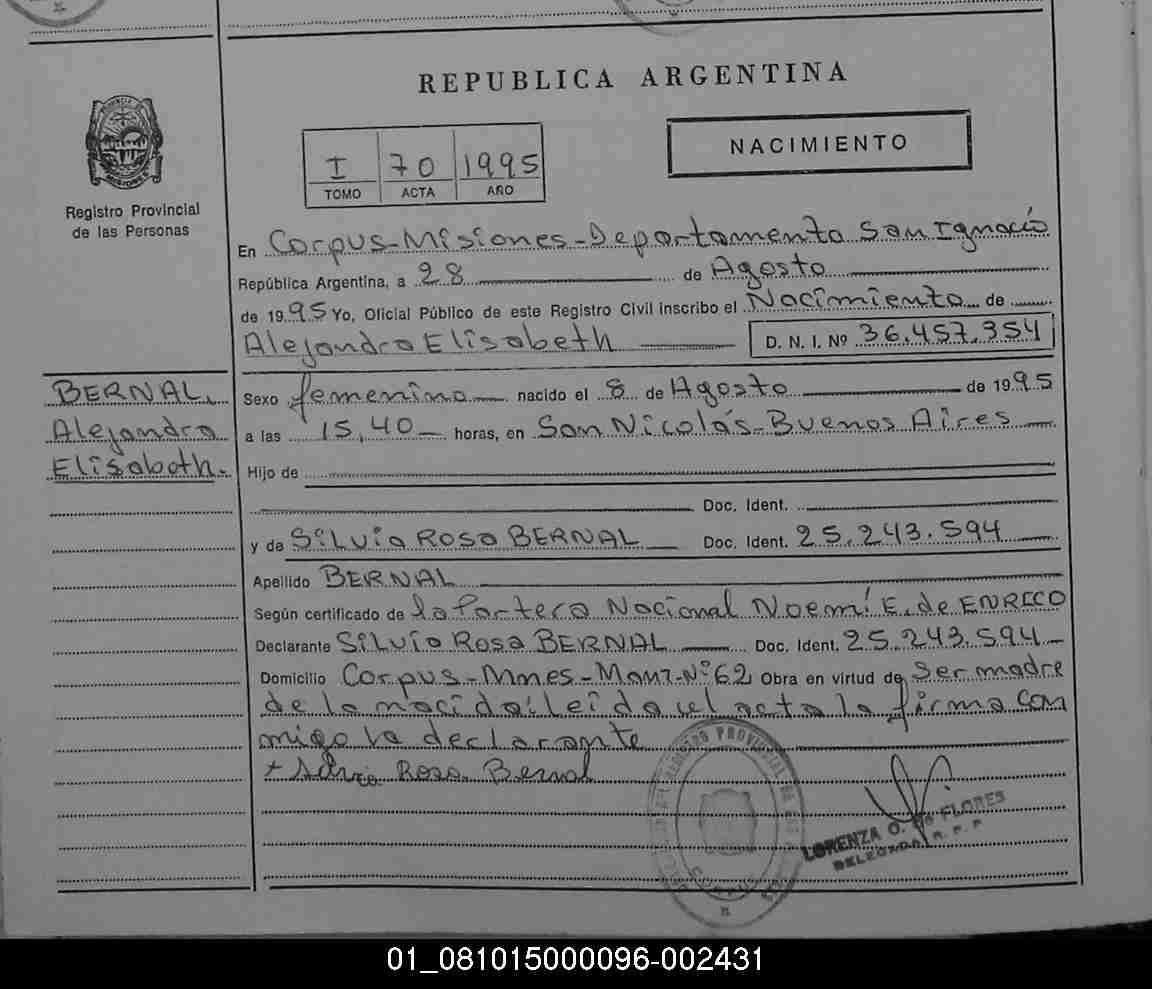 REPUBLICA ARGENTINA
NACIMIENTO
I 70 1995
TOMO ACTA AÑO
Registro Provincial
de las Personas
En Corpus-Misiones-Departamento San Ignacio
República Argentina, a 28 de Agosto
de 1995 Yo, Oficial Público de este Registro Civil inscribo el Nacimiento de
Alejandra Elisabeth D. N. I. Nº 36.457.354
BERNAL,
Alejandra
Elisabeth.
Sexo femenino nacido el 8 de Agosto de 1995
a las 15,40 horas, en San Nicolás-Buenos Aires
Hijo de
Doc. Ident.
y de Silvia Rosa BERNAL Doc. Ident. 25.243.594
Apellido BERNAL
Según certificado de la Partera Nacional Noemí E. de ENRICO
Declarante Silvia Rosa BERNAL Doc. Ident. 25.243.594
Domicilio Corpus-Mnes-Manz-Nº62 Obra en virtud de ser madre
de la nacida: leida el acta la firma con
migo la declarante
+ Silvia Rosa Bernal
REGISTRO PROVINCIAL DE LAS
CORPUS
LORENZA O. de FLORES
DELEGADA R. P. P.
01_081015000096-002431